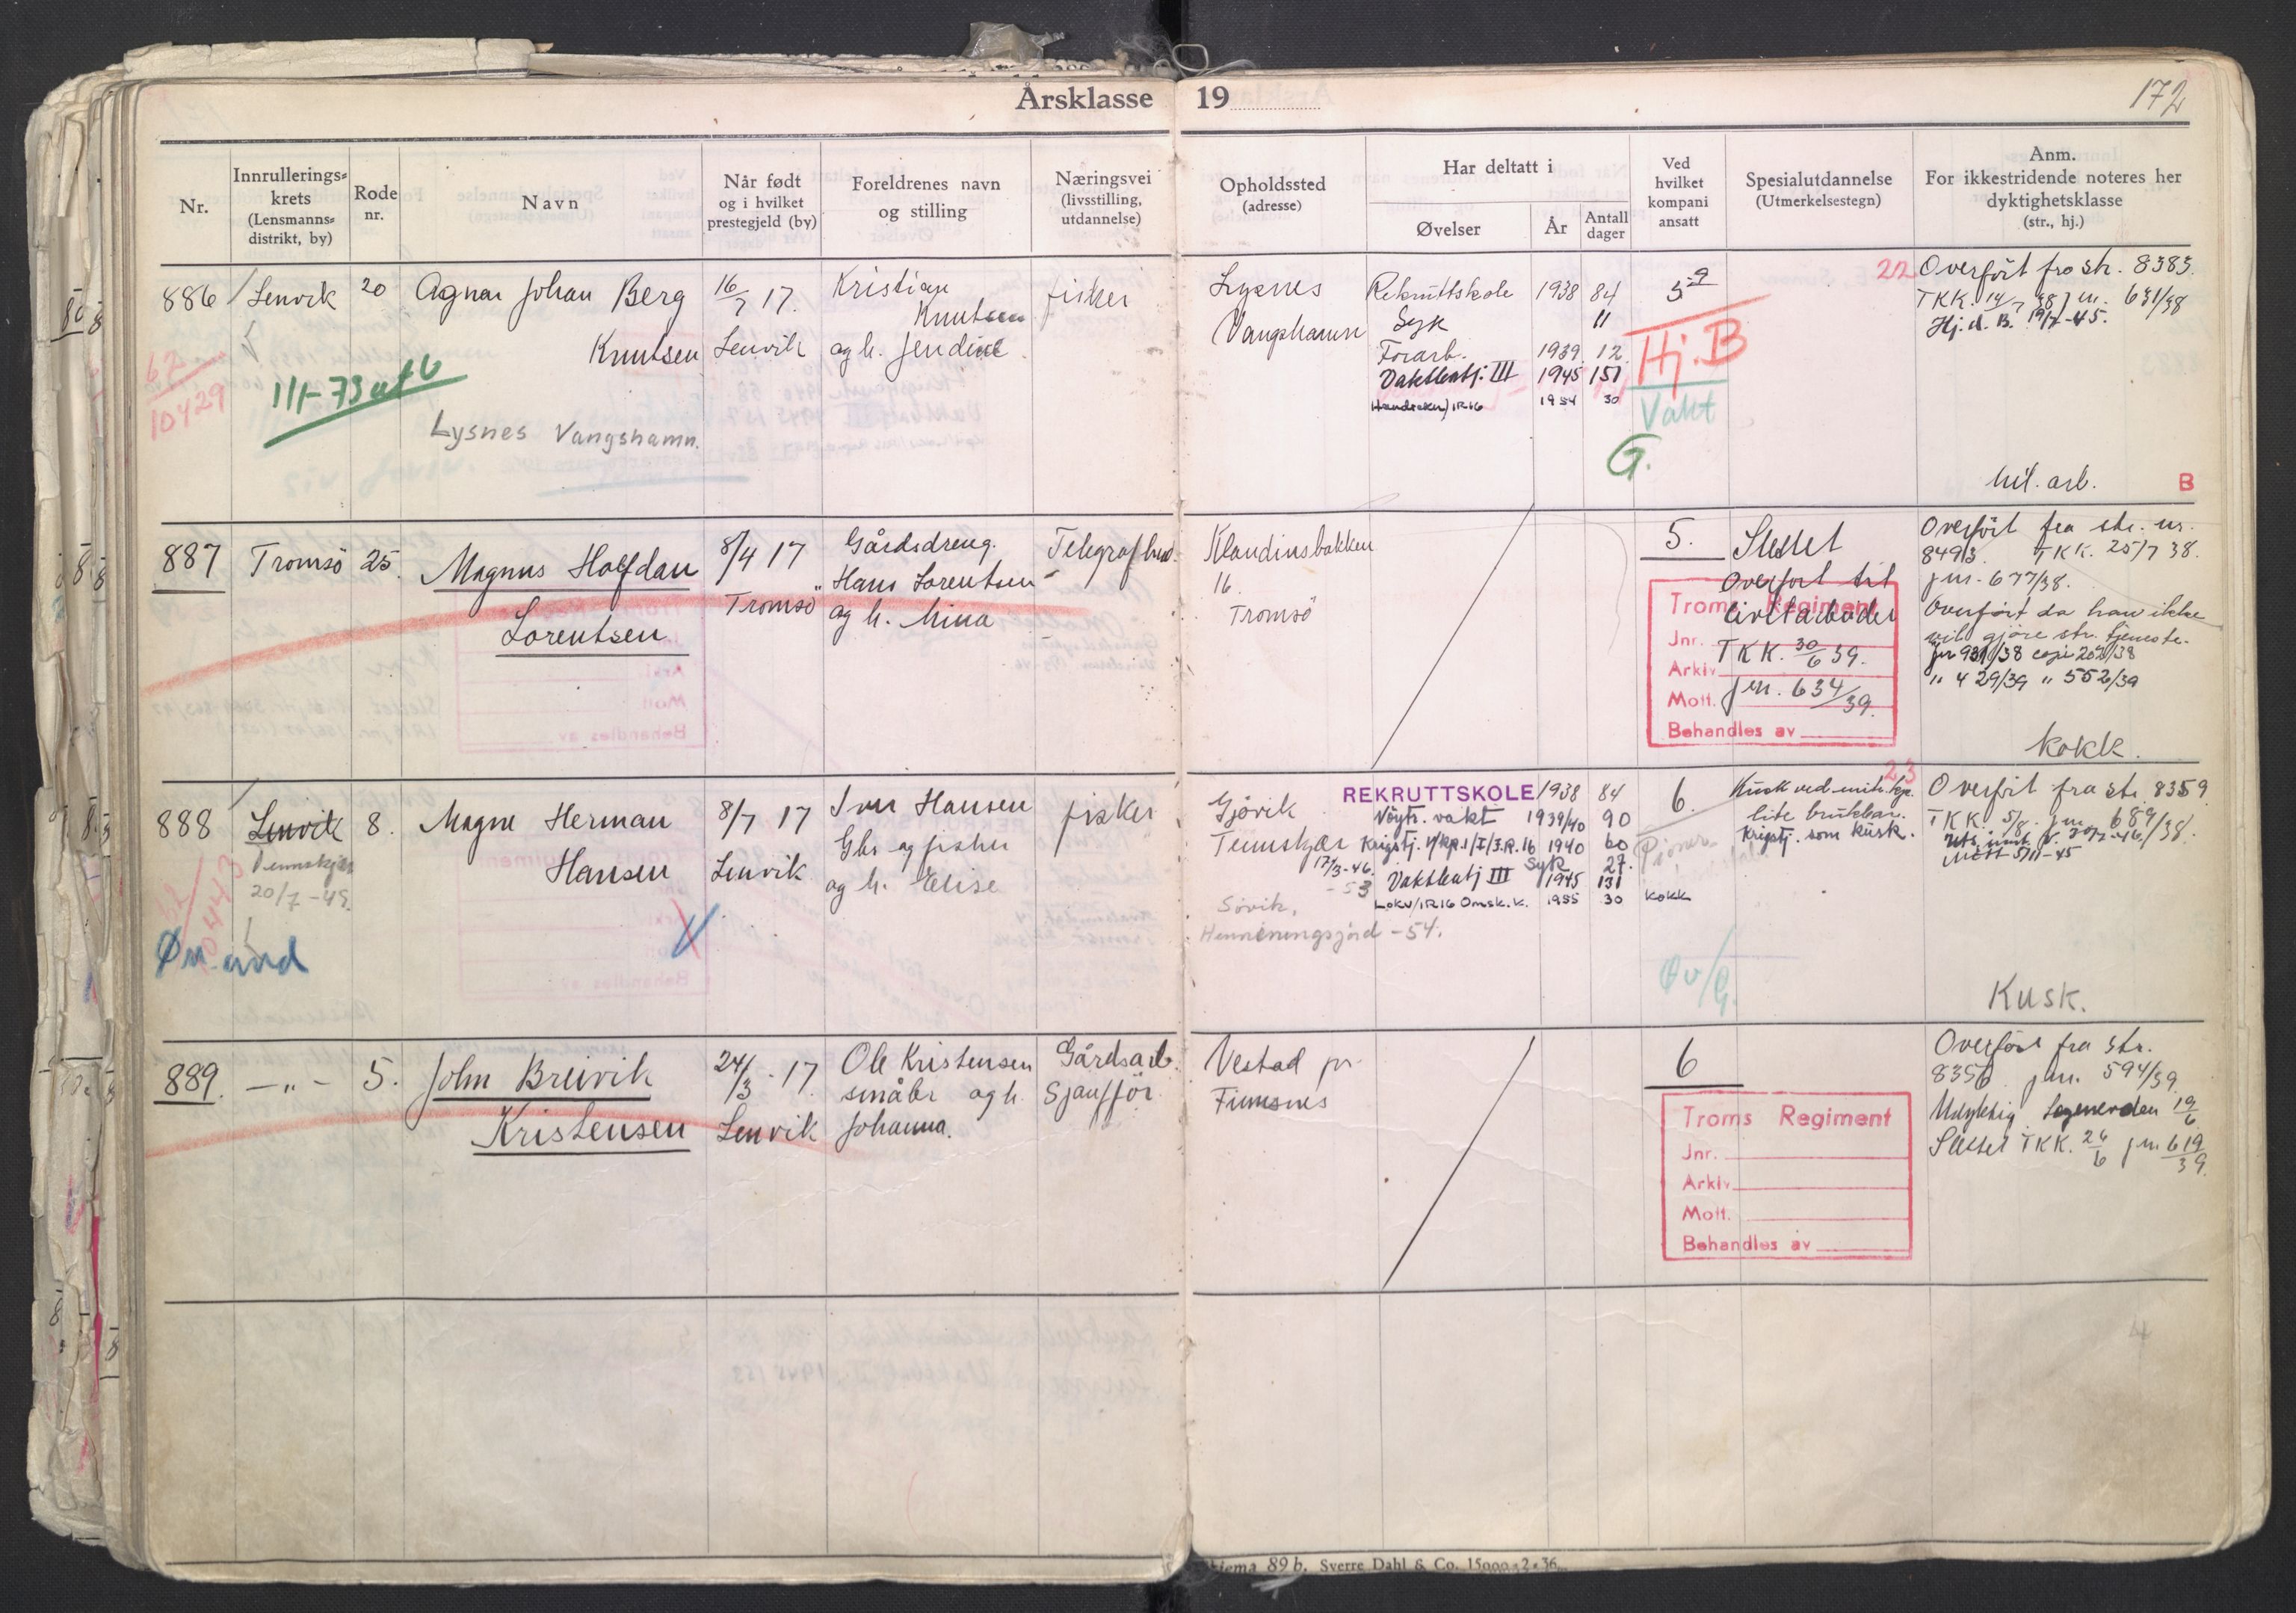 Årsklasse 19
172
Nr.
Innrullerings=
krets
(Lensmanns=
distrikt, by)
Rode
nr.
Navn
Når født
og i hvilket
prestegjeld (by)
Foreldrenes navn
og stilling
Næringsvei
(livsstilling,
utdannelse)
Opholdssted
(adresse)
Har deltatt i
Øvelser
År
Antall
dager
Ved
hvilket
kompani
ansatt
Spesialutdannelse
(Utmerkelsestegn)
Anm.
For ikkestridende noteres her
dyktighetsklasse
(str., hj.)
886 Lenvik 20 Agnar Johan Berg
Knutsen
16/7 17.
Lenvik
Kristian
Knutsen
og h. Jendine
fisker
62
10429
1/1-73 utb
Lysnes Vangshamn.
Lysnes
Vangshamn
Rekruttskole 1938 84
Syk 11
Forarb. 1939 12
Vaktbatj. III 1945 151
IR16 1954 30
Hj. B
Vakt
G.
22
Overført fra str. 8383.
TKK. 14/7 38 jnr. 631/38
Hj. d. B. 19/7-45.
Mil. arb. B
887 Tromsö 25. Magnus Halfdan
Lorentsen
8/4 17
Tromsö
Gårdsdreng.
Hans Lorentsen
og h. Mina
Telegrafbud.
Klaudiusbakken
16.
Tromsö
5.
Slettet
Overført til
Civilarbeider
TKK. 30/6 39.
jnr. 634/39.
Troms Regiment
Jnr.
Arkiv
Mott.
Behandles av
Overført fra str. nr.
8493. TKK. 25/7 38.
jnr. 677/38.
Overført da han ikke
vil gjöre str. tjeneste.
jnr 931/38
" 429/39 " 552/39
Kokk.
888 Lenvik 8. Magne Herman
Hansen
8/7 17
Lenvik
Iver Hansen
Gbr og fisker
og h. Elise
fisker
20/7-49.
62
10443
Gjövik
Tennskjær
17/3-46.
-53
Sövik,
-54.
REKRUTTSKOLE 1938 84
Nöytr. vakt 1939/40 90
Krigstj. 1940 60
Syk 27.
Vaktbatj III 1945 131
IR16 Omsk. K. 1955 30
6.
Pioner
Kokk
Øv/G.
23
Kusk ved mitr.kp.
lite brukbar.
Krigstj. som kusk.
Overført fra str. 8359
TKK. 5/8. jnr. 689/38.
Kusk.
889. — " — 5. John Breivik
Kristensen
24/3 - 17
Lenvik
Ole Kristensen
småbr og h.
Johanna.
Gårdsarb.
Sjauffør
Vestad pr.
Finnsnes
6
Troms Regiment
Jnr.
Arkiv
Mott.
Behandles av
Overført fra str.
8356 jnr. 594/39
Udyktig Legenevnden 19/6
Slettet TKK. 26/6 jnr. 619/39.
89 b. Sverre Dahl & Co. 15000-2-36.